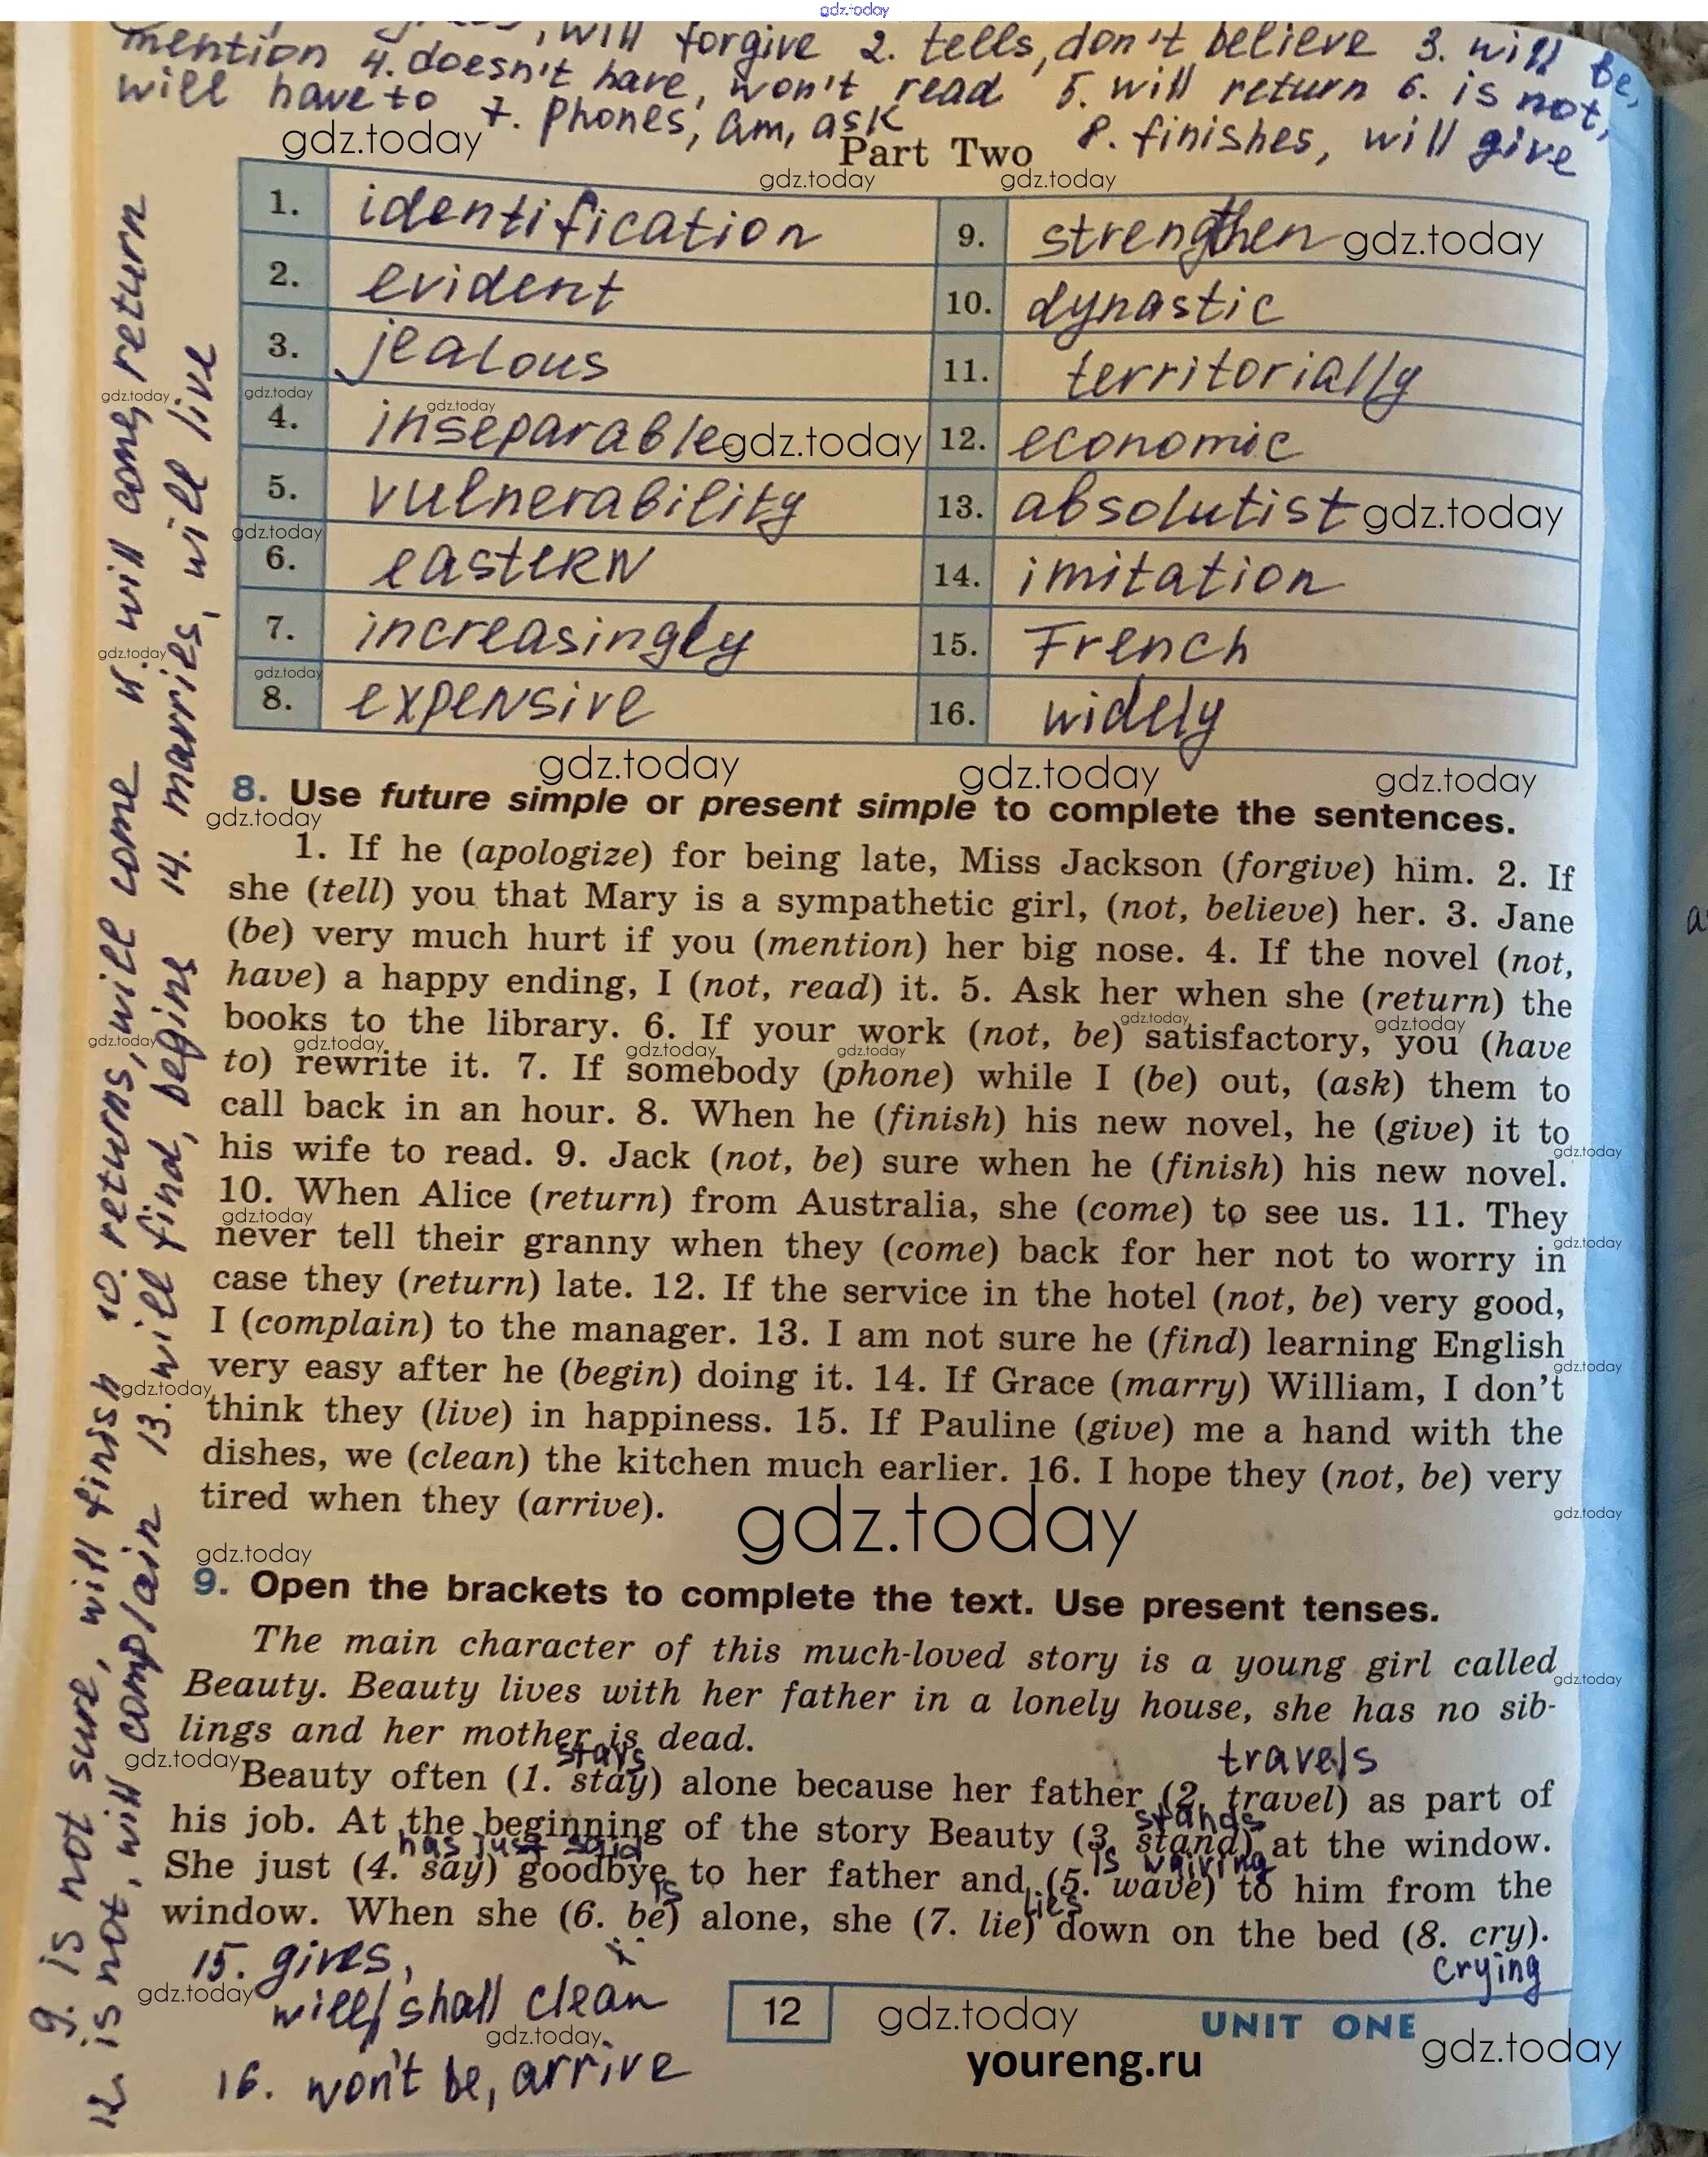 gdz.today
will forgive 2. tells, don't believe 3. will be,
mention 4. doesn't have, won't read 5. will return 6. is not,
will have to 7. phones, am, ask 8. finishes, will give
gdz.today
Part Two
gdz.today gdz.today
1. identification
2. evident
3. jealous
4. inseparable
5. vulnerability
6. eastern
7. increasingly
8. expensive
9. strengthen
10. dynastic
11. territorially
12. economic
13. absolutist
14. imitation
15. French
16. widely
gdz.today gdz.today gdz.today
8. Use future simple or present simple to complete the sentences.
1. If he (apologize) for being late, Miss Jackson (forgive) him. 2. If
she (tell) you that Mary is a sympathetic girl, (not, believe) her. 3. Jane
(be) very much hurt if you (mention) her big nose. 4. If the novel (not,
have) a happy ending, I (not, read) it. 5. Ask her when she (return) the
books to the library. 6. If your work (not, be) satisfactory, you (have
to) rewrite it. 7. If somebody (phone) while I (be) out, (ask) them to
call back in an hour. 8. When he (finish) his new novel, he (give) it to
his wife to read. 9. Jack (not, be) sure when he (finish) his new novel.
10. When Alice (return) from Australia, she (come) to see us. 11. They
never tell their granny when they (come) back for her not to worry in
case they (return) late. 12. If the service in the hotel (not, be) very good,
I (complain) to the manager. 13. I am not sure he (find) learning English
very easy after he (begin) doing it. 14. If Grace (marry) William, I don't
think they (live) in happiness. 15. If Pauline (give) me a hand with the
dishes, we (clean) the kitchen much earlier. 16. I hope they (not, be) very
tired when they (arrive).
gdz.today
9. Open the brackets to complete the text. Use present tenses.
The main character of this much-loved story is a young girl called
Beauty. Beauty lives with her father in a lonely house, she has no sib-
lings and her mother is dead.
stays travels
Beauty often (1. stay) alone because her father (2. travel) as part of
stands
his job. At the beginning of the story Beauty (3. stand) at the window.
has just said is waiving
She just (4. say) goodbye to her father and (5. wave) to him from the
is lies
window. When she (6. be) alone, she (7. lie) down on the bed (8. cry).
crying
9. is not sure, will finish 10. returns, will come 11. will come, return
12. is not, will complain 13. will find, begins 14. marries, will live
15. gives,
will/shall clean
16. won't be, arrive
12
gdz.today
UNIT ONE
gdz.today
youreng.ru